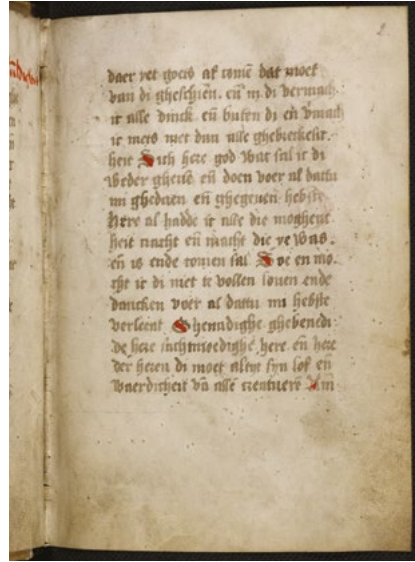 2
daer yet goets af comē dat moet
van di gheschien. eñ in di vermach
ic alle dinck eñ buten di eñ vmach
ic niets niet dan alle ghebreckelic
heit Sich here god wat sal ic di
weder gheuē eñ doen voer al dattu
mi ghedaen eñ ghegeuen hebste
Here al hadde ic alle die moghent
heit nacht eñ macht die ye was.
eñ is ende comen sal Soe en mo
cht ic di niet te vollen louen ende
dancken voer al dattu mi hebste
verleent Ghenadighe ghebenedi
de here sachtmoedighe here eñ here
der heren di moet altyt syn lof eñ
waerdicheit vā allē creatuerē Am